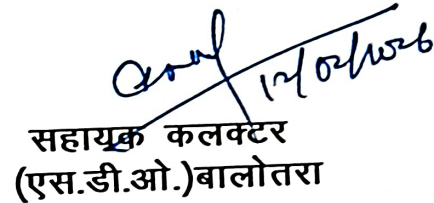 12/02/2026
सहायक कलक्टर
(एस.डी.ओ.)बालोतरा